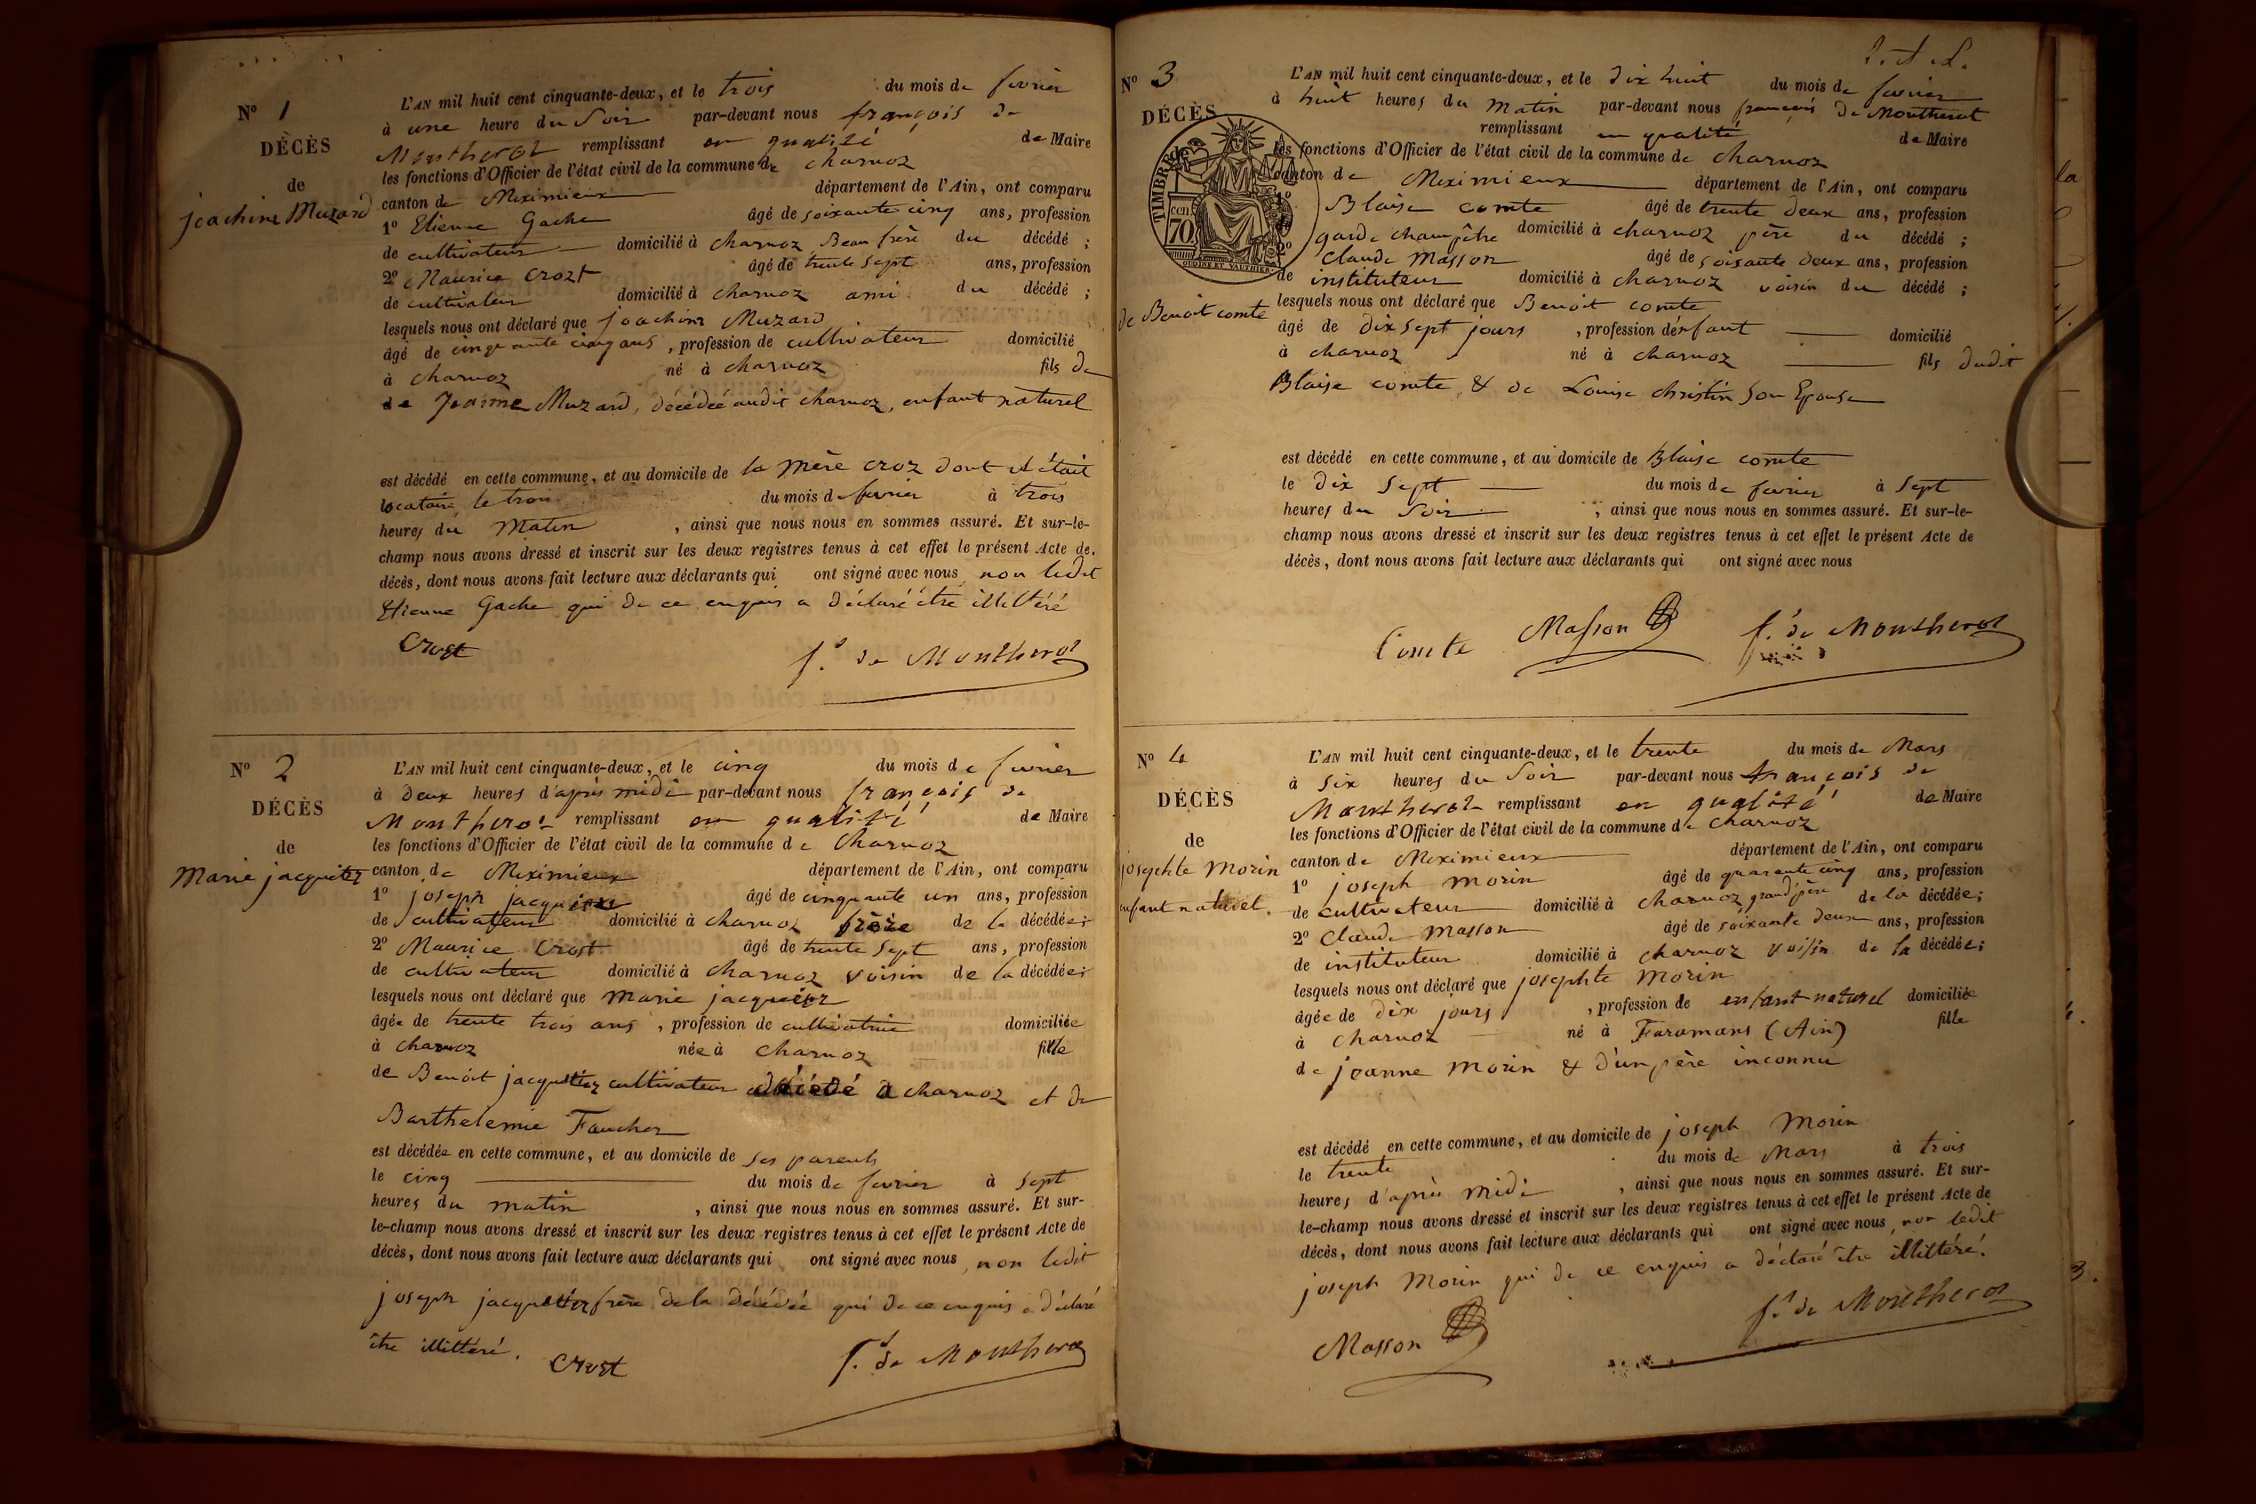 N° 1
DÉCÈS
de
joachim Muzard
L'AN mil huit cent cinquante-deux, et le trois du mois de fevrier
à une heure du Soir par-devant nous françois de
Montherot remplissant en qualité de Maire
les fonctions d'Officier de l'état civil de la commune de charnoz
canton de Meximieux département de l'Ain, ont comparu
1° Etienne Gache âgé de soixante cinq ans, profession
de cultivateur domicilié à charnoz Beau frère du décédé ;
2° Maurice Crozt âgé de trente sept ans, profession
de cultivateur domicilié à charnoz ami du décédé ;
lesquels nous ont déclaré que joachim Muzard
âgé de cinquante cinq ans, profession de cultivateur domicilié
à charnoz né à charnoz fils de
de Jeanne Muzard, décédée audit charnoz, enfant naturel
est décédé en cette commune, et au domicile de la mère croz dont il était
locataire le trois du mois de fevrier à trois
heures du Matin, ainsi que nous nous en sommes assuré. Et sur-le-
champ nous avons dressé et inscrit sur les deux registres tenus à cet effet le présent Acte de
décès, dont nous avons fait lecture aux déclarants qui ont signé avec nous, non ledit
Etienne Gache qui de ce enquis a déclaré être illitéré
Crost f.s de Montherot
N° 2
DÉCÈS
de
Marie jacquiez
L'AN mil huit cent cinquante-deux, et le cinq du mois de fevrier
à deux heures d'après midi par-devant nous françois de
Montherot remplissant en qualité de Maire
les fonctions d'Officier de l'état civil de la commune de Charnoz
canton de Meximieux département de l'Ain, ont comparu
1° joseph âgé de cinquante un ans, profession
de cultivateur domicilié à charnoz frère de la décédée;
2° Maurice Crost âgé de trente sept ans, profession
de cultivateur domicilié à charnoz voisin de la décédée;
lesquels nous ont déclaré que marie
âgée de trente trois ans, profession de cultivatrice domiciliée
à charnoz née à charnoz fille
de Benoit cultivateur décédé à charnoz et de
Barthelemie Faucher
est décédée en cette commune, et au domicile de ses parents
le cinq du mois de fevrier à sept
heures du matin, ainsi que nous nous en sommes assuré. Et sur-
le-champ nous avons dressé et inscrit sur les deux registres tenus à cet effet le présent Acte de
décès, dont nous avons fait lecture aux déclarants qui ont signé avec nous, non ledit
joseph frère de la décédée qui de ce enquis a déclaré
être illittéré. Crost f.s de Montherot
N° 3
DÉCÈS
de Benoit comte
TIMBRE
cen
70
L'AN mil huit cent cinquante-deux, et le dix huit du mois de fevrier
à huit heures du Matin par-devant nous françois de Montherot
remplissant en qualité de Maire
les fonctions d'Officier de l'état civil de la commune de charnoz
canton de Meximieux département de l'Ain, ont comparu
1° Blaise comte âgé de trente deux ans, profession
garde champêtre domicilié à charnoz père du décédé ;
2° Claude Masson âgé de soisante deux ans, profession
de instituteur domicilié à charnoz voisin du décédé ;
lesquels nous ont déclaré que Benoit comte
âgé de dix sept jours, profession d'enfant domicilié
à charnoz né à charnoz fils dudit
Blaise comte & de Louise christin son Epouse
est décédé en cette commune, et au domicile de Blaise comte
le dix sept du mois de fevrier à sept
heures du soir, ainsi que nous nous en sommes assuré. Et sur-le-
champ nous avons dressé et inscrit sur les deux registres tenus à cet effet le présent Acte de
décès, dont nous avons fait lecture aux déclarants qui ont signé avec nous
Comte Masson f.s de Montherot
N° 4
DÉCÈS
de
josephte Morin
enfant naturel.
L'AN mil huit cent cinquante-deux, et le trente du mois de Mars
à six heures du soir par-devant nous françois de
Montherot remplissant en qualité de Maire
les fonctions d'Officier de l'état civil de la commune de charnoz
canton de Meximieux département de l'Ain, ont comparu
1° joseph morin âgé de quarante cinq ans, profession
de cultivateur domicilié à charnoz grand'père de la décédée;
2° Claude Masson âgé de soixante deux ans, profession
de instituteur domicilié à charnoz voisin de la décédée;
lesquels nous ont déclaré que josephte morin
âgée de dix jours, profession de enfant naturel domiciliée
à charnoz né à Faramans (Ain) fille
de jeanne morin & d'un père inconnu
est décédé en cette commune, et au domicile de joseph Morin
le trente du mois de Mars à trois
heures d'après midi, ainsi que nous nous en sommes assuré. Et sur-
le-champ nous avons dressé et inscrit sur les deux registres tenus à cet effet le présent Acte de
décès, dont nous avons fait lecture aux déclarants qui ont signé avec nous, non ledit
joseph Morin qui de ce enquis a déclaré être illittéré.
Masson f.s de Montherot